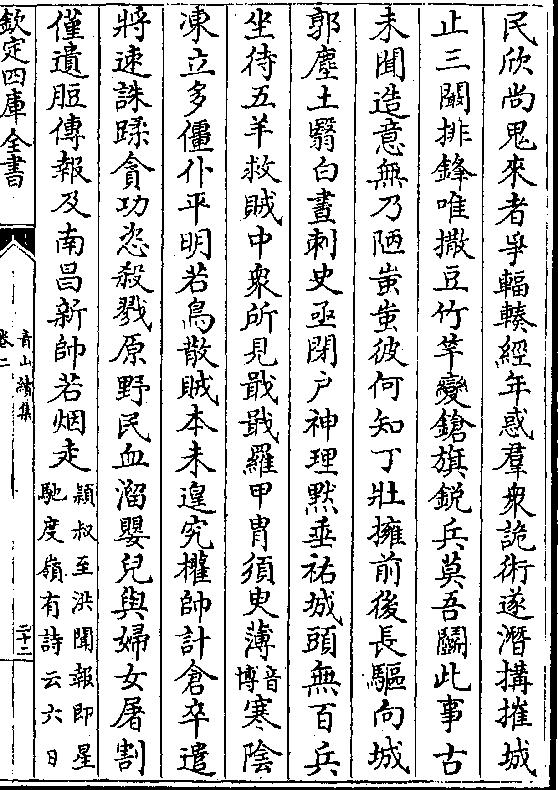 民欣尚鬼來者爭輻輳經年惑羣衆詭術遂潛搆摧城
止三闕排鋒唯撒豆竹竿變鎗旗鋭兵莫吾鬭此事古
未聞造意無乃陋蚩蚩彼何知丁壯擁前後長驅向城
郭塵土翳白晝刺史亟閉户神理黙垂祐城頭無百兵
坐待五羊救賊中衆所見戢戢羅甲胄須臾薄音博寒陰
凍立多僵仆平明若鳥散賊本未遑究權帥計倉卒遣
將速誅蹂貪功恣殺戮原野民血溜嬰兒與婦女屠割
僅遺脰傳報及南昌新帥若烟走
潁叔至洪聞報即星
馳度嶺有詩云六日
欽定四庫全書
青山續集
卷二
二十二